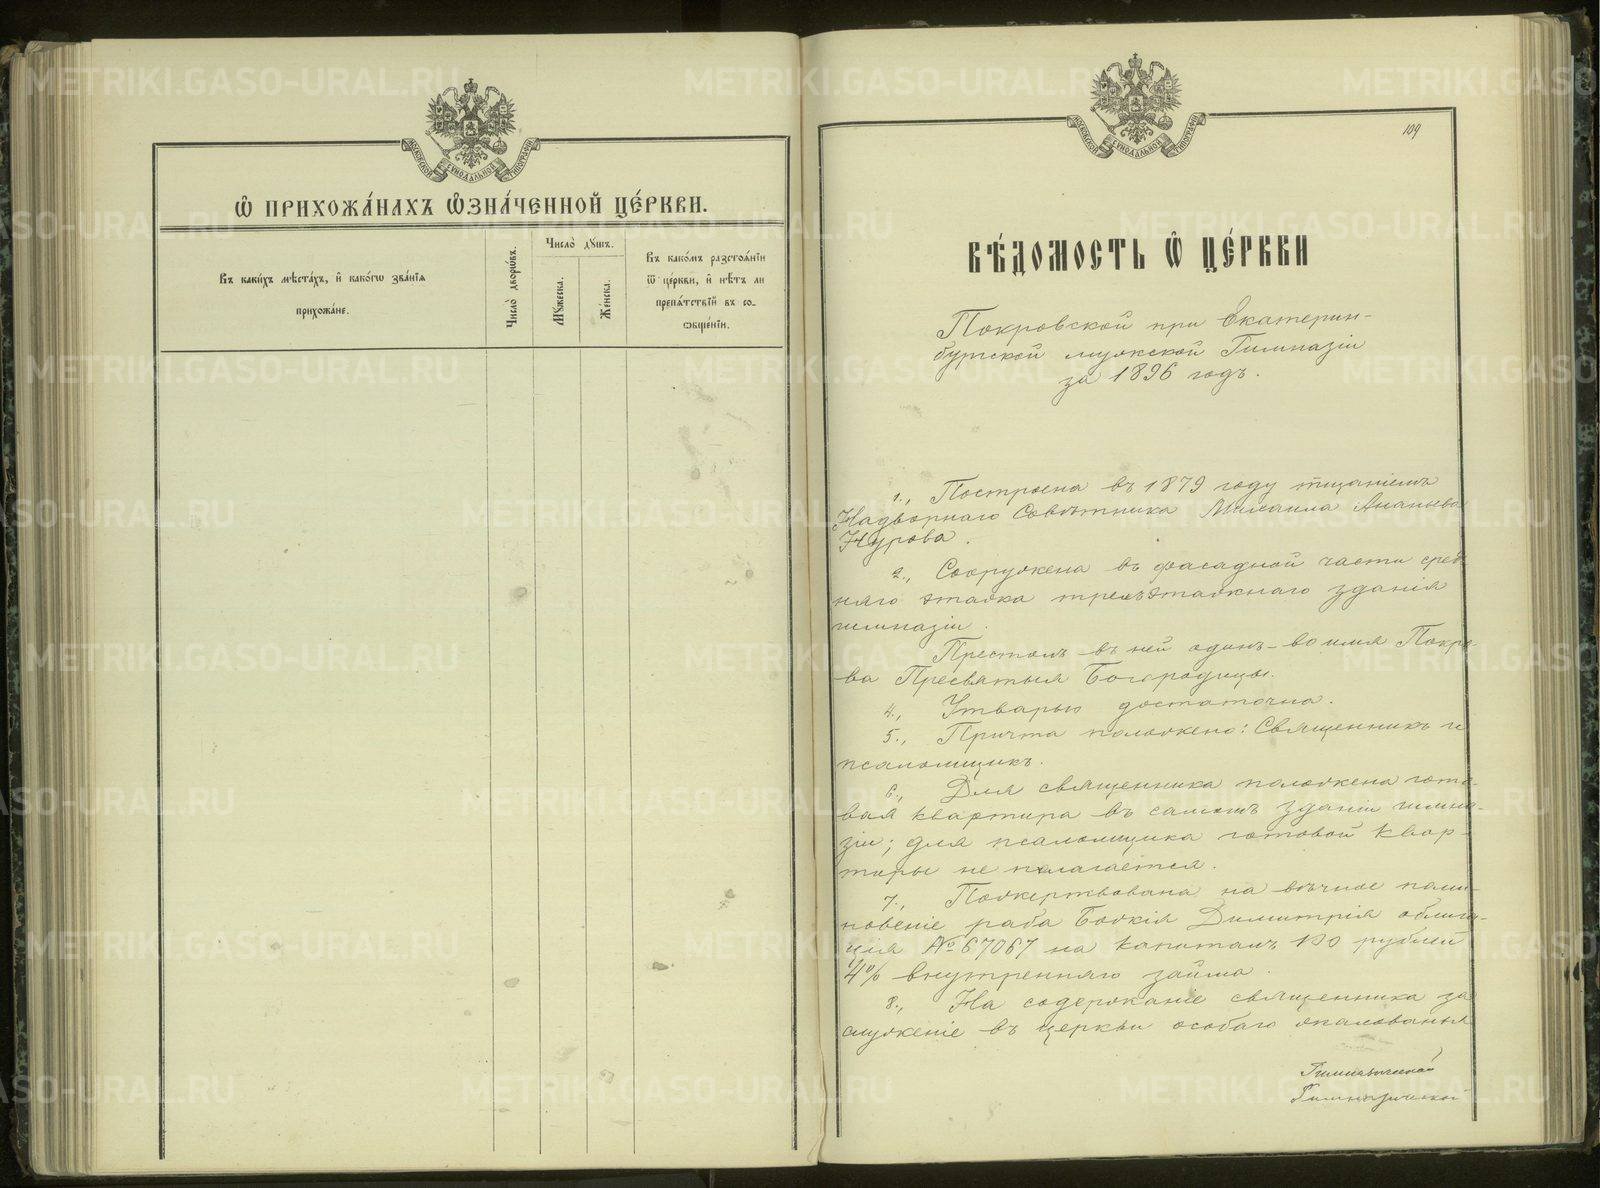 МОСКОВСКОЙ СѴНОДАЛЬНОЙ ТИПОГРАФІИ
Ѽ ПРИХОЖА́НАХЪ Ѽ҆ЗНА́ЧЕННОЙ ЦЕ́РКВИ.
Въ каки́хъ мѣста́хъ, и҆ како́гѡ зва́нїѧ
прихожа́не.
Число̀ дворѡ́въ.
Число̀ дꙋ́шъ.
Мꙋ́жеска.
Же́нска.
Въ како́мъ разстоѧ́нїи
ѿ це́ркви, и҆ нѣ́тъ ли
препѧ́тствїй въ со-
ѻбще́нїи.
МОСКОВСКОЙ СѴНОДАЛЬНОЙ ТИПОГРАФІИ
109
ВѢ́ДОМОСТЬ Ѽ ЦЕ́РКВИ
Покровской при Екатерин-
бургской мужской Гимназіи
за 1896 годъ.
1., Построена въ 1879 году тщаніемъ
Надворнаго Совѣтника Михаила Ананьева
Нурова.
2., Сооружена въ фасадной части сред-
няго этажа трехъэтажнаго зданія
гимназіи.
Престолъ въ ней одинъ – во имя Покро-
ва Пресвятыя Богородицы.
4., Утварью достаточна.
5., Причта положено: Священникъ и
псаломщикъ.
6., Для священника положена гото-
вая квартира въ самомъ зданіи гимна-
зіи; для псаломщика готовой квар-
тиры не полагается.
7., Пожертвована на вѣчное поми-
новеніе раба Божія Димитрія облига-
ція № 67067 на капиталъ 100 рублей
4% внутренняго займа.
8., На содержаніе священника за
служеніе въ церкви особаго жалованья
Гимназической
Гимназической
METRIKI.GASO-URAL.RU